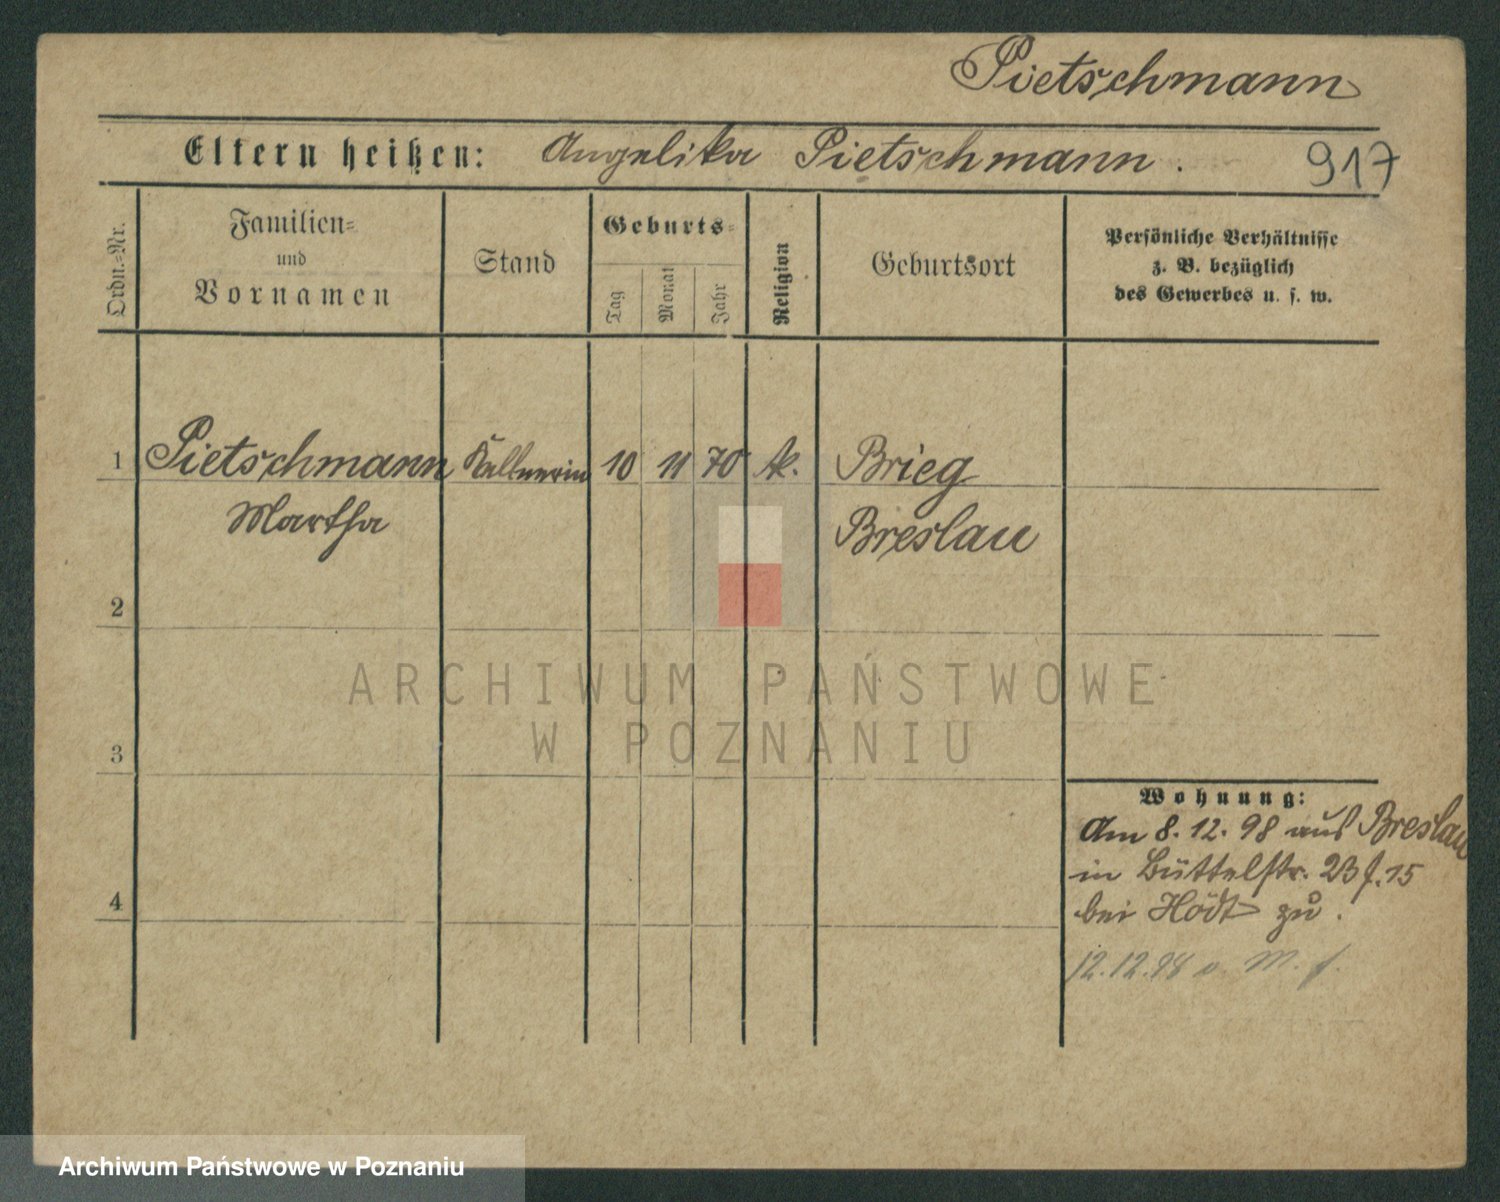 Pietschmann
Eltern heißen: Angelika Pietschmann.
917
Ordn.=Nr.
Familien=
und
Vornamen
Stand
Geburts=
Tag
Monat
Jahr
Religion
Geburtsort
Persönliche Verhältnisse
z. B. bezüglich
des Gewerbes u. s. w.
1 Pietschmann Kellnerin 10 11 70 k. Brieg
Martha Breslau
2
3
4
Wohnung:
Am 8. 12. 98 aus Breslau
in Büttelstr. 23 f. 15
bei Hödt zu.
12.12.98 v. M.
ARCHIWUM PAŃSTWOWE
W POZNANIU
Archiwum Państwowe w Poznaniu